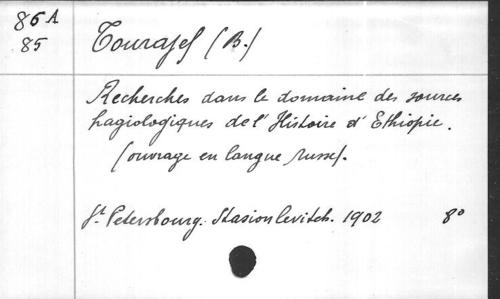 86 A
85
Tourajef (B.)
Recherches dans le domaine des sources
hagiologiques de l'Histoire d'Ethiopie.
(ouvrage en langue russe).
St. Petersbourg. Stasionlevitch. 1902 8°